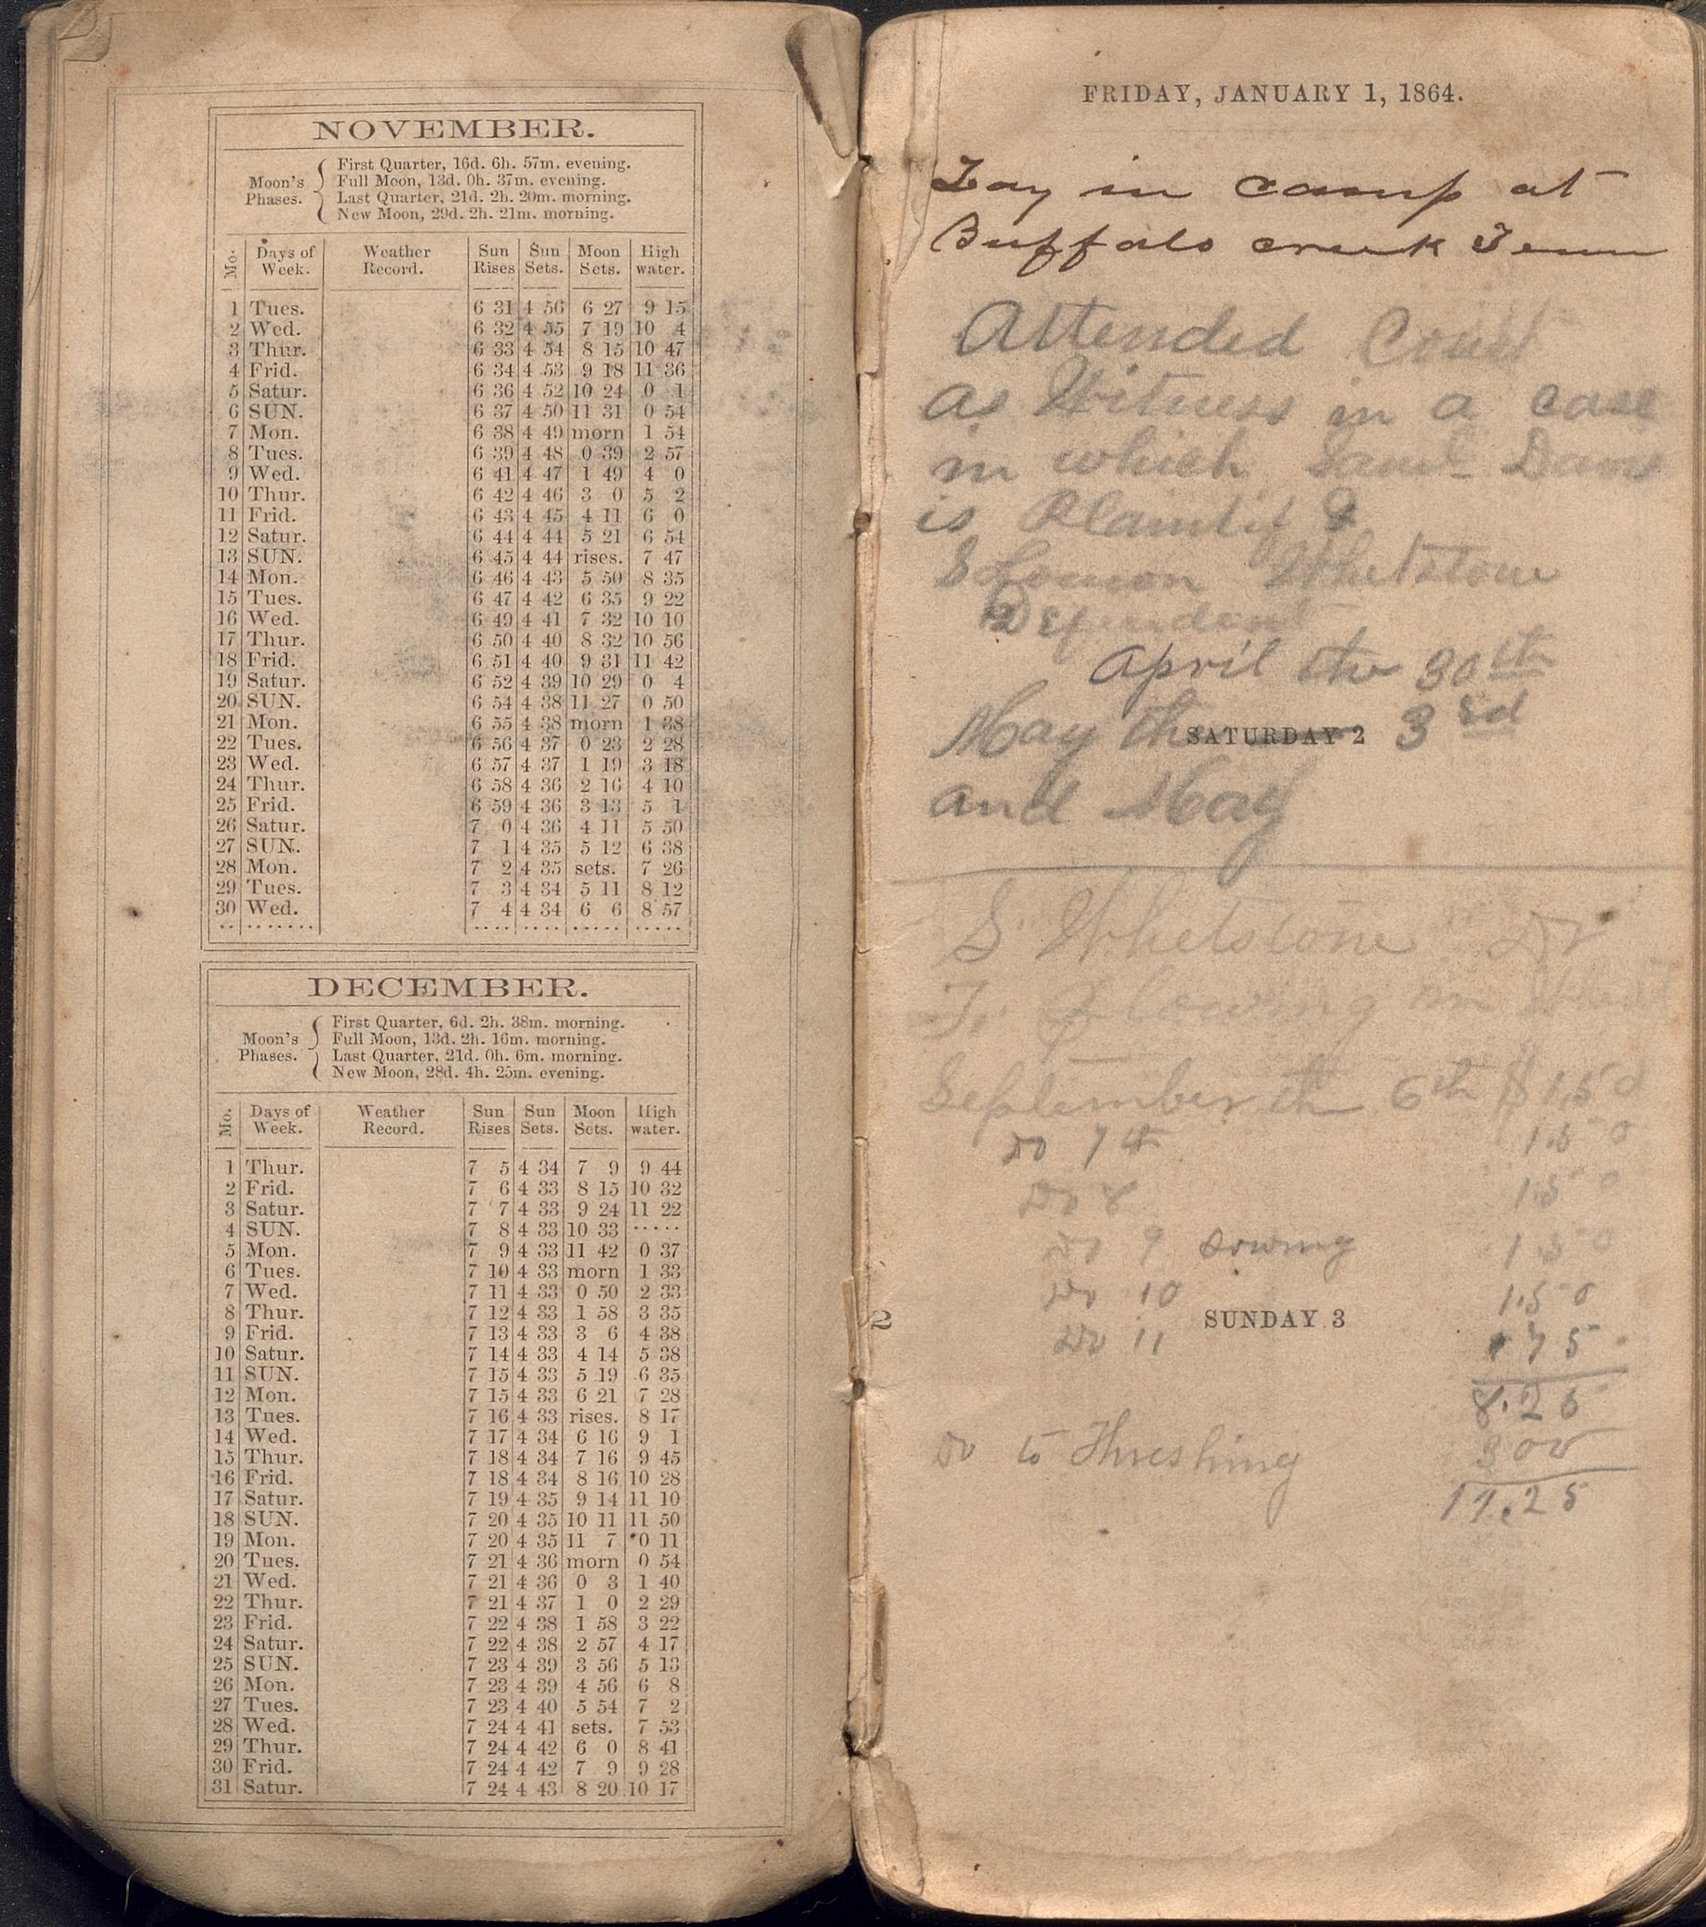 NOVEMBER.
Moon's Phases.
First Quarter, 16d. 6h. 57m. evening.
Full Moon, 13d. 0h. 37m. evening.
Last Quarter, 21d. 2h. 20m. morning.
New Moon, 29d. 2h. 21m. morning.
Mo. Days of Week. Weather Record. Sun Rises Sun Sets. Moon Sets. High water.
1 Tues. 6 31 4 56 6 27 9 15
2 Wed. 6 32 4 55 7 19 10 4
3 Thur. 6 33 4 54 8 15 10 47
4 Frid. 6 34 4 53 9 18 11 36
5 Satur. 6 36 4 52 10 24 0 1
6 SUN. 6 37 4 50 11 31 0 54
7 Mon. 6 38 4 49 morn 1 54
8 Tues. 6 39 4 48 0 39 2 57
9 Wed. 6 41 4 47 1 49 4 0
10 Thur. 6 42 4 46 3 0 5 2
11 Frid. 6 43 4 45 4 11 6 0
12 Satur. 6 44 4 44 5 21 6 54
13 SUN. 6 45 4 44 rises. 7 47
14 Mon. 6 46 4 43 5 50 8 35
15 Tues. 6 47 4 42 6 35 9 22
16 Wed. 6 49 4 41 7 32 10 10
17 Thur. 6 50 4 40 8 32 10 56
18 Frid. 6 51 4 40 9 31 11 42
19 Satur. 6 52 4 39 10 29 0 4
20 SUN. 6 54 4 38 11 27 0 50
21 Mon. 6 55 4 38 morn 1 38
22 Tues. 6 56 4 37 0 23 2 28
23 Wed. 6 57 4 37 1 19 3 18
24 Thur. 6 58 4 36 2 16 4 10
25 Frid. 6 59 4 36 3 13 5 1
26 Satur. 7 0 4 36 4 11 5 50
27 SUN. 7 1 4 35 5 12 6 38
28 Mon. 7 2 4 35 sets. 7 26
29 Tues. 7 3 4 34 5 11 8 12
30 Wed. 7 4 4 34 6 6 8 57
DECEMBER.
Moon's Phases.
First Quarter, 6d. 2h. 38m. morning.
Full Moon, 13d. 2h. 16m. morning.
Last Quarter, 21d. 0h. 6m. morning.
New Moon, 28d. 4h. 25m. evening.
Mo. Days of Week. Weather Record. Sun Rises Sun Sets. Moon Sets. High water.
1 Thur. 7 5 4 34 7 9 9 44
2 Frid. 7 6 4 33 8 15 10 32
3 Satur. 7 7 4 33 9 24 11 22
4 SUN. 7 8 4 33 10 33 .....
5 Mon. 7 9 4 33 11 42 0 37
6 Tues. 7 10 4 33 morn 1 33
7 Wed. 7 11 4 33 0 50 2 33
8 Thur. 7 12 4 33 1 58 3 35
9 Frid. 7 13 4 33 3 6 4 38
10 Satur. 7 14 4 33 4 14 5 38
11 SUN. 7 15 4 33 5 19 6 35
12 Mon. 7 15 4 33 6 21 7 28
13 Tues. 7 16 4 33 rises. 8 17
14 Wed. 7 17 4 34 6 16 9 1
15 Thur. 7 18 4 34 7 16 9 45
16 Frid. 7 18 4 34 8 16 10 28
17 Satur. 7 19 4 35 9 14 11 10
18 SUN. 7 20 4 35 10 11 11 50
19 Mon. 7 20 4 35 11 7 0 11
20 Tues. 7 21 4 36 morn 0 54
21 Wed. 7 21 4 36 0 3 1 40
22 Thur. 7 21 4 37 1 0 2 29
23 Frid. 7 22 4 38 1 58 3 22
24 Satur. 7 22 4 38 2 57 4 17
25 SUN. 7 23 4 39 3 56 5 13
26 Mon. 7 23 4 39 4 56 6 8
27 Tues. 7 23 4 40 5 54 7 2
28 Wed. 7 24 4 41 sets. 7 53
29 Thur. 7 24 4 42 6 0 8 41
30 Frid. 7 24 4 42 7 9 9 28
31 Satur. 7 24 4 43 8 20 10 17
FRIDAY, JANUARY 1, 1864.
Lay in camp at
Buffalo creek Tenn
Attended Court
as Witness in a case
in which Saml Davis
is Plaintif &
Solomon Whetstone
Defendent
April the 30th
May th SATURDAY 2 3rd
and May
S. Whetstone Dr
To Plowing in
September th 6th $1.50
Do 7th 1.50
Do 8 1.50
Do 9 sowing 1.50
Do 10 1.50
SUNDAY 3
2
Do 11 75
8.25
Do to Threshing 300
11.25